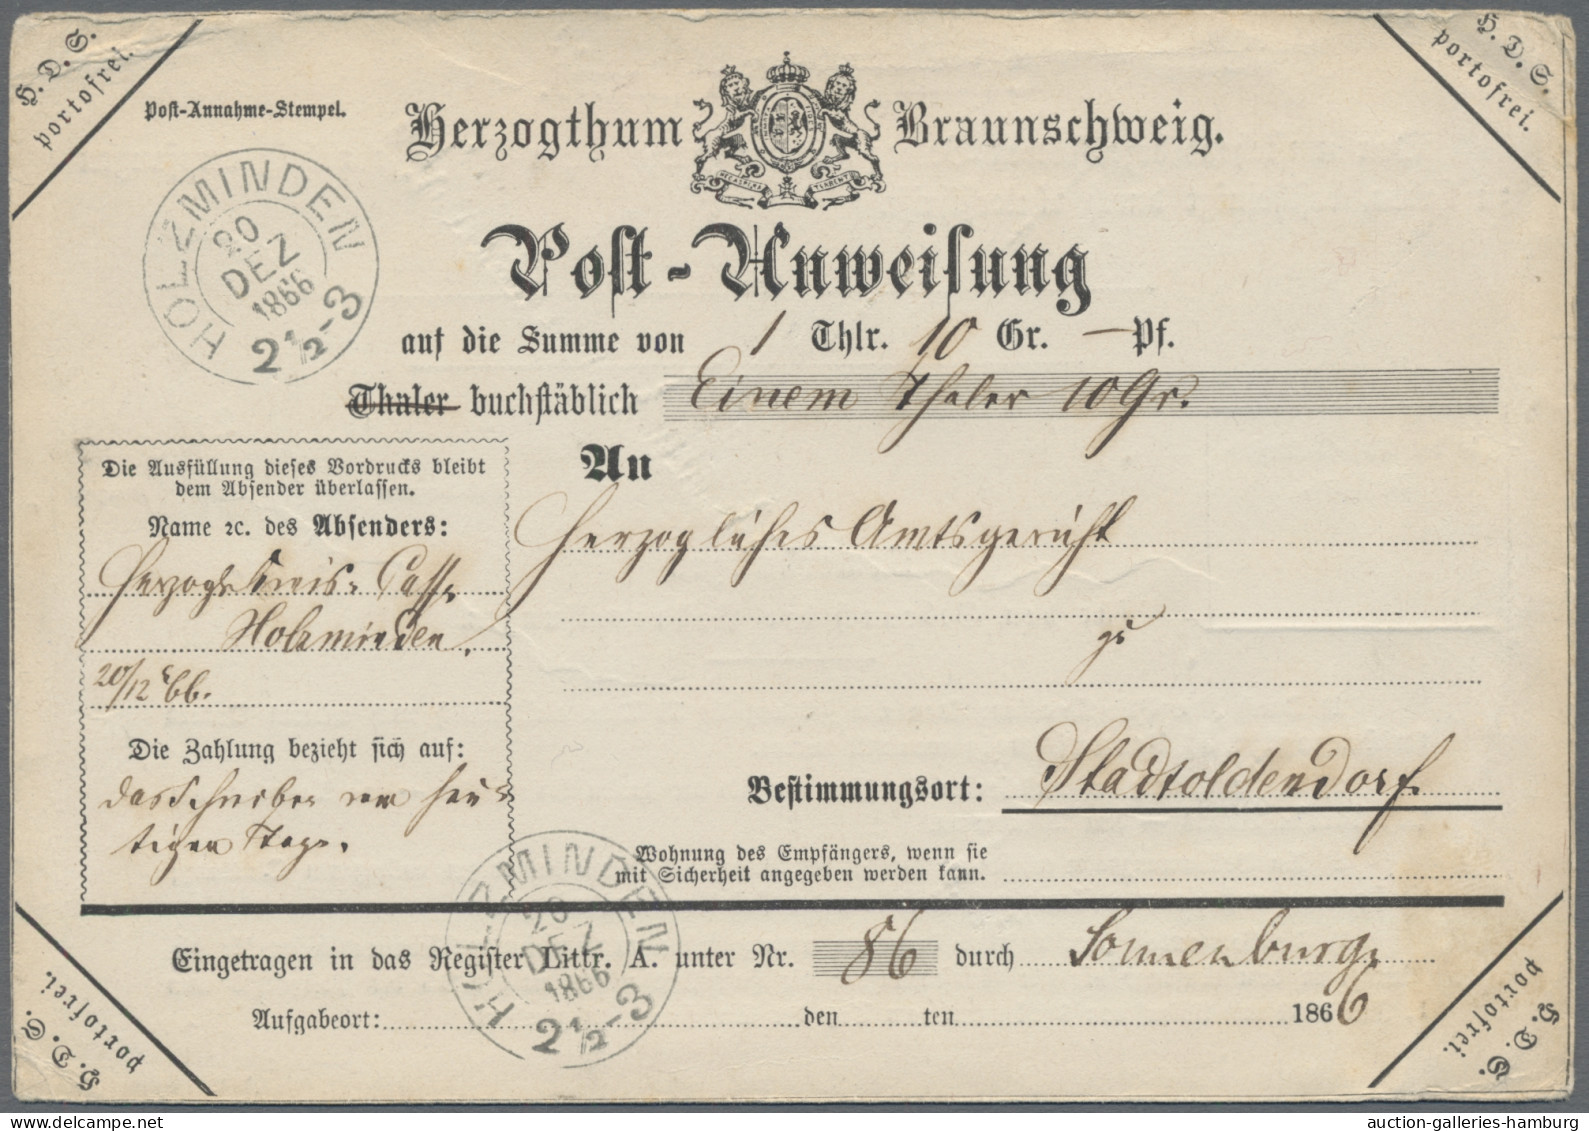 H. D. S.
portofrei.
H. D. S.
portofrei.
Post-Annahme-Stempel.
Herzogthum Braunschweig.
NEC ASPERA TERRENT
HOLZMINDEN
20
DEZ
1866
2½-3
Post-Anweisung
auf die Summe von 1 Thlr. 10 Gr. — Pf.
Thaler buchstäblich Einem Thaler 10 Gr.
Die Ausfüllung dieses Vordrucks bleibt
dem Absender überlassen.
Name ꝛc. des Absenders:
Herzogl. Kreis-Casse
Holzminden.
20/12 66.
Die Zahlung bezieht sich auf:
das Schreiben vom heu-
tigen Tage.
An
Herzogliches Amtsgericht
zu
Bestimmungsort: Stadtoldendorf.
Wohnung des Empfängers, wenn sie
mit Sicherheit angegeben werden kann.
HOLZMINDEN
20
DEZ
1866
2½-3
Eingetragen in das Register Littr. A. unter Nr. 86 durch Sonnenburg
Aufgabeort: den ten 1866
H. D. S.
portofrei.
H. D. S.
portofrei.
auction-galleries-hamburg